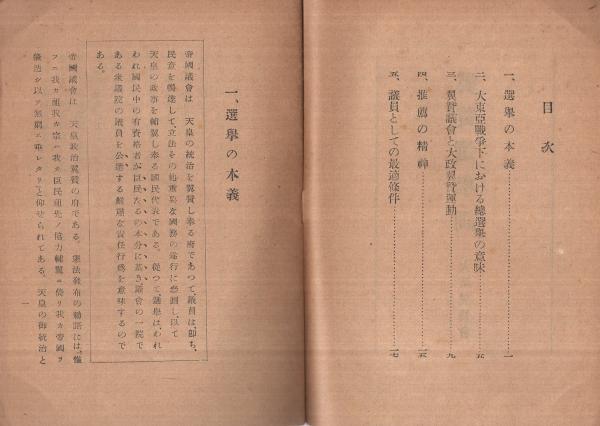 目次
一、選擧の本義…一
二、大東亞戰爭下における總選擧の意味…五
三、翼賛議會と大政翼賛運動…九
四、推薦の精神…一五
五、議員としての最適條件…一七
一、選擧の本義
帝國議會は 天皇の統治を翼賛し奉る府であつて、議員は、卽ち、
民意を暢達して、立法その他重要な國務の遂行に參畫し、以て
天皇の政事を輔翼し奉る國民代表である。從つて、選擧は、われ
われ國民中の有資格者が臣民たるの本分に基き議會の一院で
ある衆議院の議員を公選する嚴肅な責任行爲を意味するので
ある。
帝國議會は 天皇政治翼賛の府である。憲法發布の勅語には、惟
フニ我カ祖我カ宗ハ我カ臣民祖先ノ協力輔翼ニ倚リ我カ帝國ヲ
肇造シ以テ無窮ニ垂レタリ」と仰せられてある。 天皇の御統治と
一